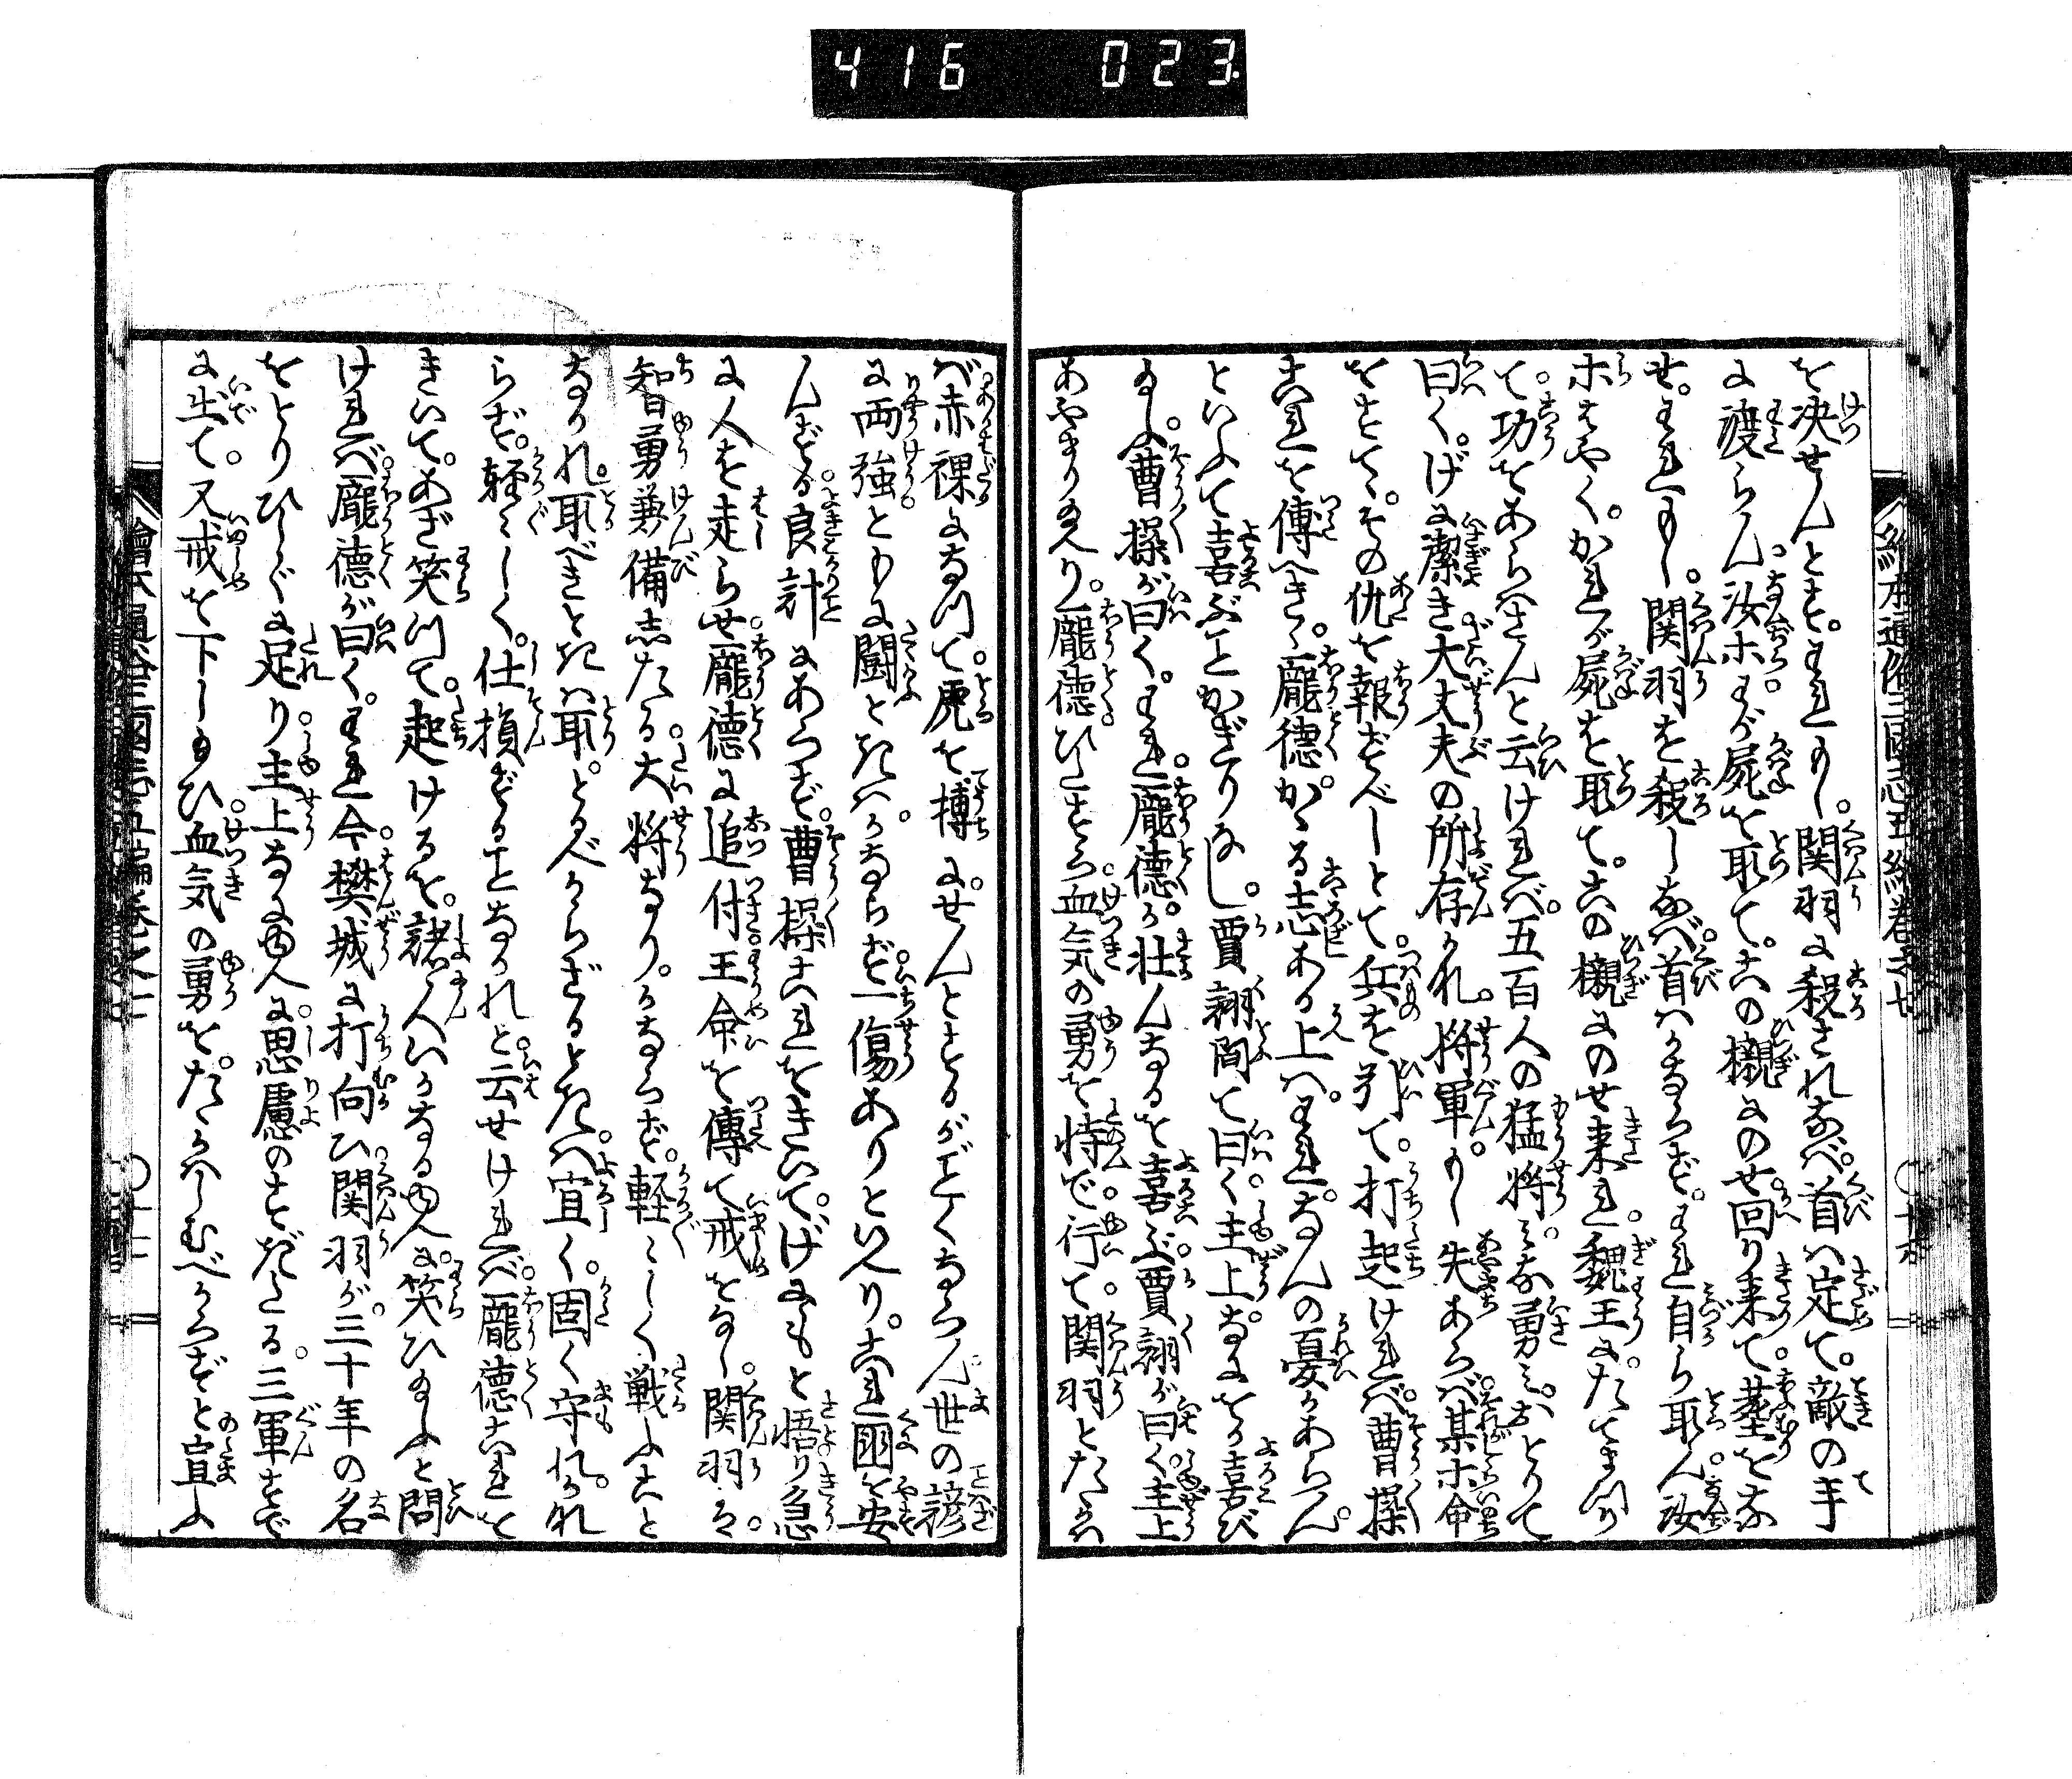 416 023
を決せんとす。われもし。関羽に殺されなば。首は定て。敵の手
に渡らん。汝ホわが屍を取て。この櫬にのせ回り来て。墓をな
せ。われもし。関羽を殺しなば。首はかならず。われ自ら取ん。汝
ホはやく。かれが屍を取て。この櫬にのせ来れ。魏王にたてまつり
て。功をあらはさんと云ければ。五百人の猛将みな勇みおとりて
曰く。げに潔き大丈夫の所存かれ。将軍。もし失あらば。某ホ命
をすてゝ。その仇を報ずべしとて。兵を引て。打起ければ。曹操
これを傳へきゝ。龐德。かゝる志ある上は。われなんの憂かあらん。
といふて喜ぶことかぎりなし。賈詡聞て曰く。主上なにをか喜び
給ふ。曹操が曰く。われ。龐德が壮んなるを喜ぶ。賈詡が曰く。主上
あやまり給へり。龐德ひとすら。血気の勇を恃で行て。関羽とたゝかは
ば。赤裸になつて。虎を搏にせんとするがごとくならん。世の諺
に両強ともに闘ときは。かならず一傷ありといへり。これ国を安
んずる。良計にあらず。曹操これをきいて。げにもと悟り急
に人を走らせ龐德に追付。王命を傳て戒をなし。関羽は。
智勇兼備したる。大将なり。かならず。軽〻しく戦ふこと
なかれ。取べきときは取。とるべからざるときは。宜く。固く守れかれ
らず。軽〻しく。仕損ずることなかれと。云せければ。龐德これを
きいて。あざ笑つて。起けるを。諸人いかなる物に。笑ひ給ふと問
ければ。龐德が曰く。われ今。樊城に打向ひ関羽が。三十年の名
をとりひしぐに足り。主上なに物に思慮のすぎたる。三軍すで
に出て。又戒を下し給ひ。血気の勇を。たゝかはしむべからずと宣ふ